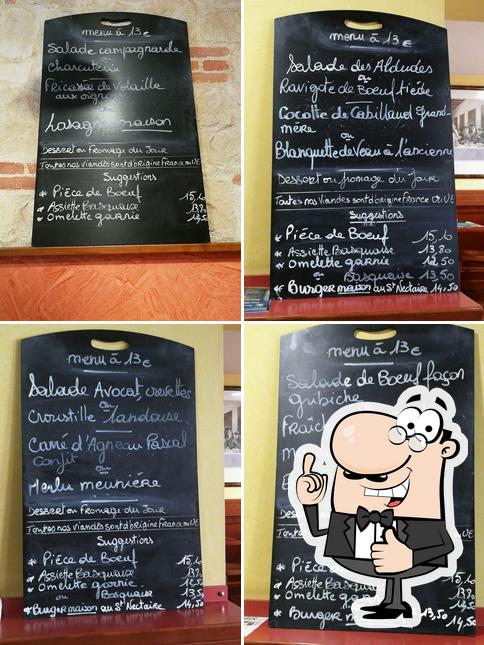 menu à 13€
Salade campagnarde
ou
Charcuterie
Fricassée de Volaille
aux oignons
Lasagnes maison
Dessert ou Fromage du Jour
Toutes nos Viandes sont d'origine France ou UE
Suggestions
* Pièce de Boeuf 15,10
* Assiette Basquaise
* Omelette garnie
menu à 13€
Salade des Aldudes
ou
Ravigote de Boeuf tiède
Cocotte de Cabillaud grand-
mère
ou
Blanquette de Veau à l'ancienne
Dessert ou fromage du Jour
Toutes nos Viandes sont d'origine France ou UE
Suggestions
* Pièce de Boeuf 15,10
* Assiette Basquaise 13,80
* Omelette garnie 12,50
ou Basquaise 13,50
* Burger maison au St Nectaire 14,50
menu à 13€
Salade Avocat crevettes
ou
Croustille Landaise
Carré d'Agneau Pascal
Confit
ou
Merlu meunière
Dessert ou Fromage du Jour
Toutes nos Viandes sont d'origine France ou UE
Suggestions
* Pièce de Boeuf 15,10
* Assiette Basquaise
* Omelette garnie
ou Basquaise 13,50
* Burger maison au St Nectaire 14,50
menu à 13€
Salade de Boeuf façon
gribiche
* Pièce
* Assiette
* Omelette
* Burger 13,50